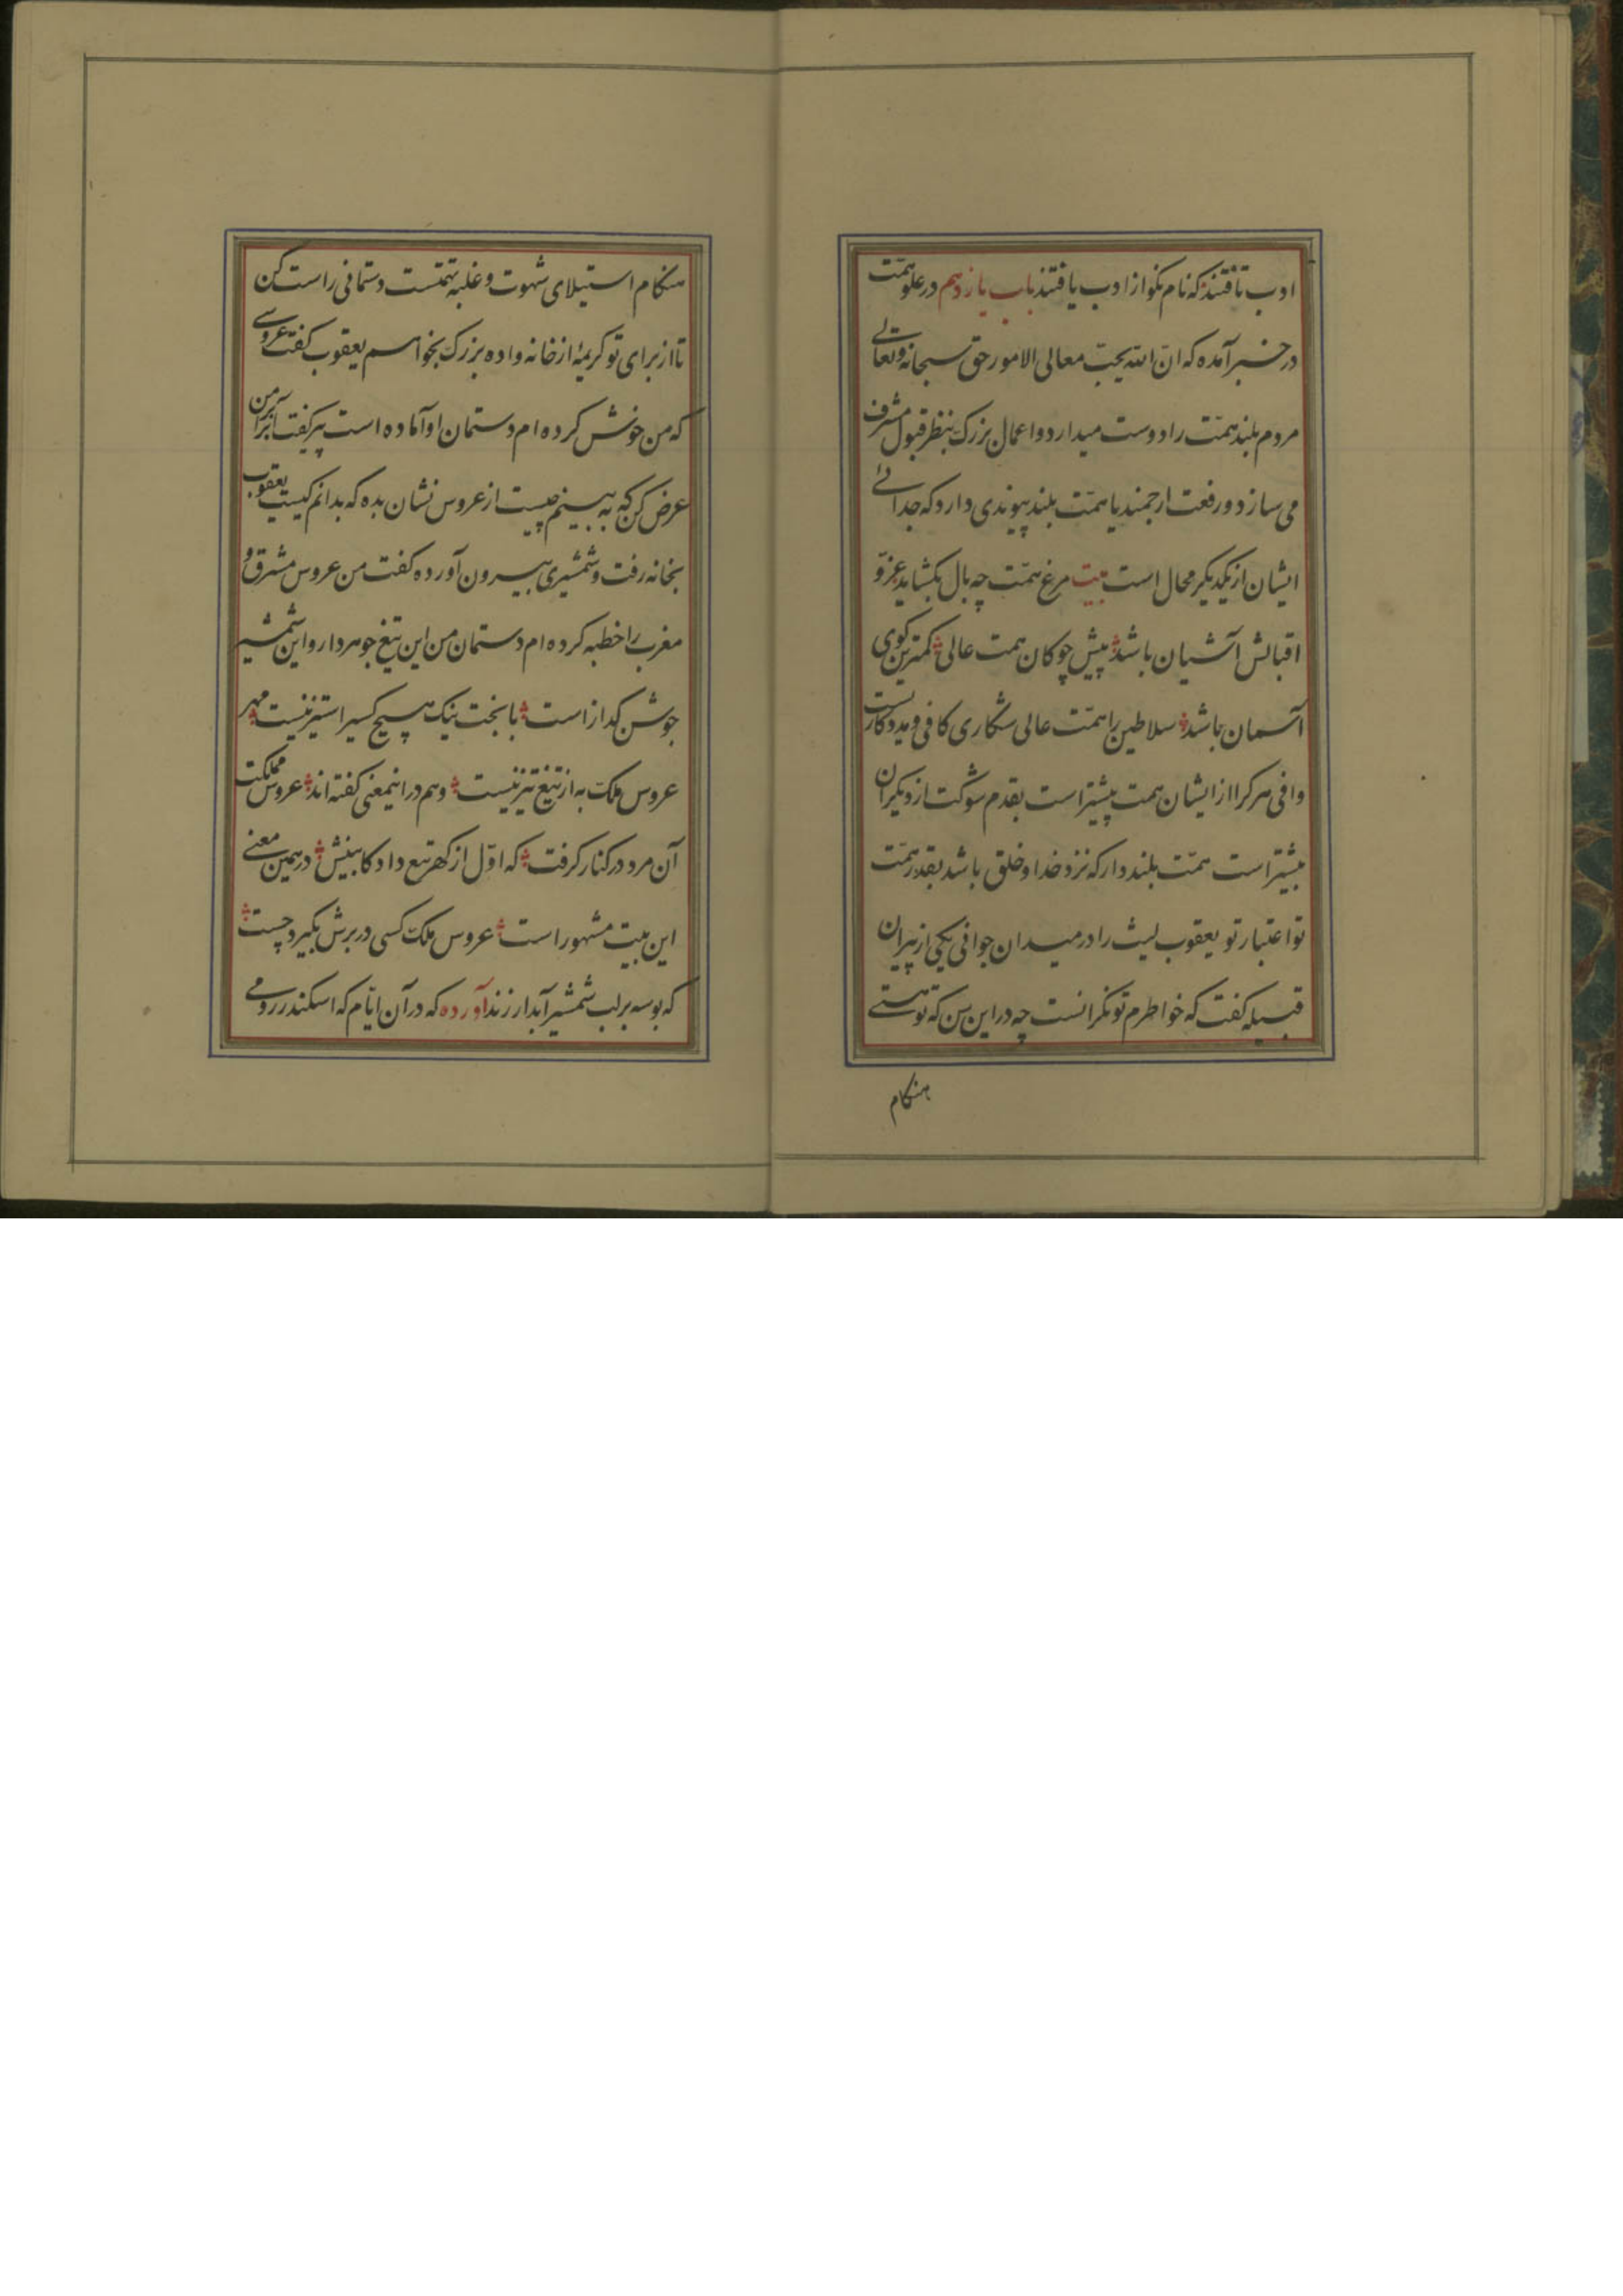 ادب تافتند که نام نکو از ادب یافتند باب یازدهم در علو همت
در خبر آمده که ان الله یحبّ معالی الامور حق سبحانه وتعالی
مردم بلند همّت را دوست میدارد و اعمال بزرک بنظر قبول مشرف
می سازد و رفعت ارجمند با همّت بلند پیوندی دارد که جدائی
ایشان از یکدیکر محال است بیت مرغ همّت چه بال بکشاید عزّ و
اقبالش آشیان باشد پیش چوکان همت عالی کمترین کوی
آسمان باشد سلاطین را همّت عالی شکاری کافی و مددکاریست
وافی هر کرا از ایشان همت بیشتر است بقدم شوکت از دیکران
بیشتر است همّت بلند دار که نزد خدا و خلق باشد بقدر همّت
تو اعتبار تو یعقوب لیث را در میدان جوانی یکی از پیران
قبیله کفت که خواطرم تو نکرانست چه در این سن که تو هستی
هنکام
هنکام استیلای شهوت و غلبه تهمتست دستمانی راست کن
تا از برای تو کریمهٔ از خانه واده بزرک بخواهم یعقوب کفت عروسی
که من خوش کرده ام دستمان او آماده است پیر کفت آنرا بر من
عرض کن که به بینم چیست از عروس نشان بده که بدانم کیست یعقوب
بخانه رفت و شمشیری بیرون آورده کفت من عروس مشرق و
مغرب را خطبه کرده ام دستمان من این تیغ جوهردار و این شمشیر
جوشن کداز است با بخت نیک هیچ کسیرا ستیز نیست مهر
عروس ملک به از تیغ تیز نیست و هم در اینمعنی کفته اند عروس مملکت
آن مرد در کنار کرفت که اوّل از کهر تیع داد کابینش در همین معنی
این بیت مشهور است عروس ملک کسی در برش بکیرد چست
که بوسه بر لب شمشیر آبدار زند آورده که در آن ایّام که اسکندر رومی